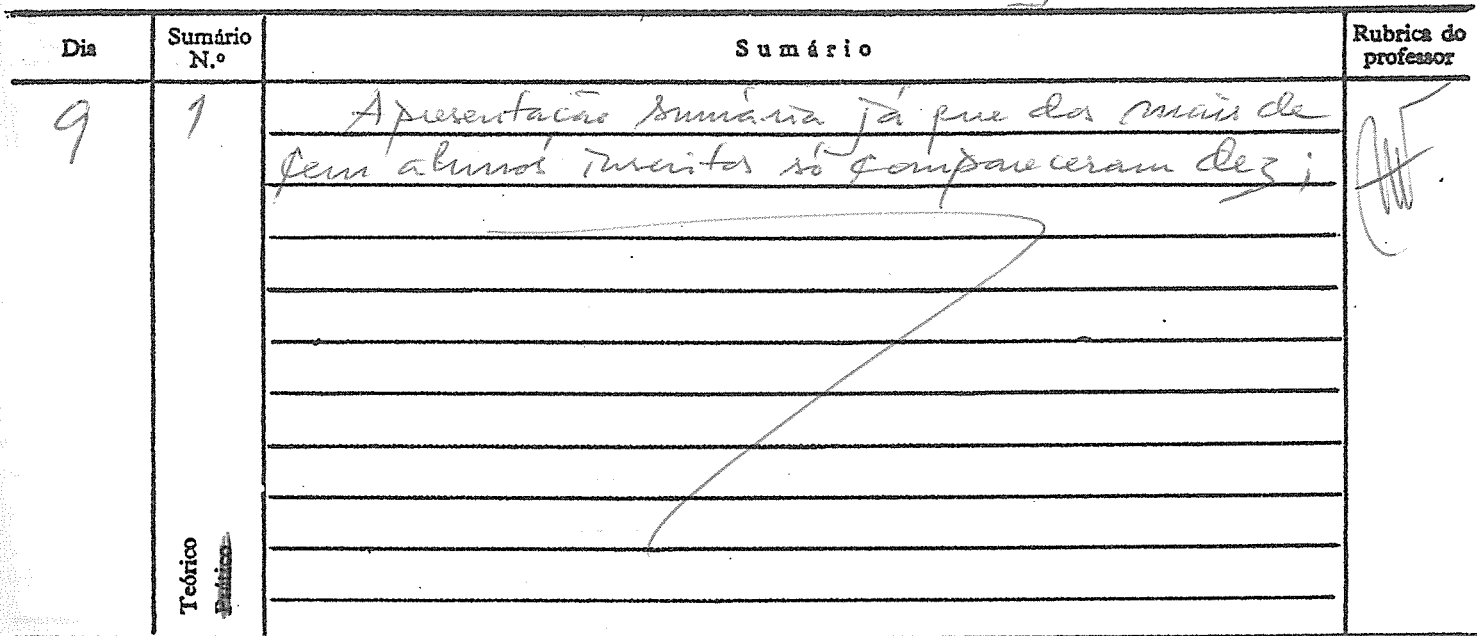 Dia
Sumário N.º
Sumário
Rubrica do professor
9
1
Apresentação sumária já que dos mais de
cem alunos inscritos só compareceram dez;
Teórico
Prático